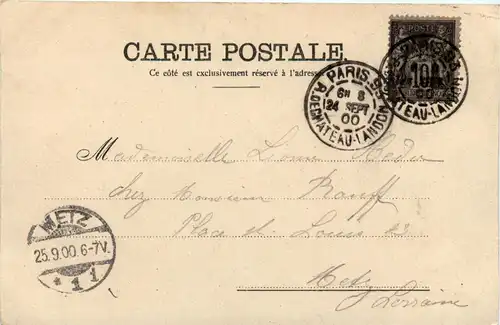 CARTE POSTALE
Ce côté est exclusivement réservé à l'adresse
POSTE
10
PARIS
6H 8
24 SEPT
00
R. DE CHATEAU-LANDON
00
CHATEAU-LANDON
Mademoiselle
chez Monsieur
Place St Louis
Metz
Lorraine
METZ
25.9.00.6-7V.
* 1 1